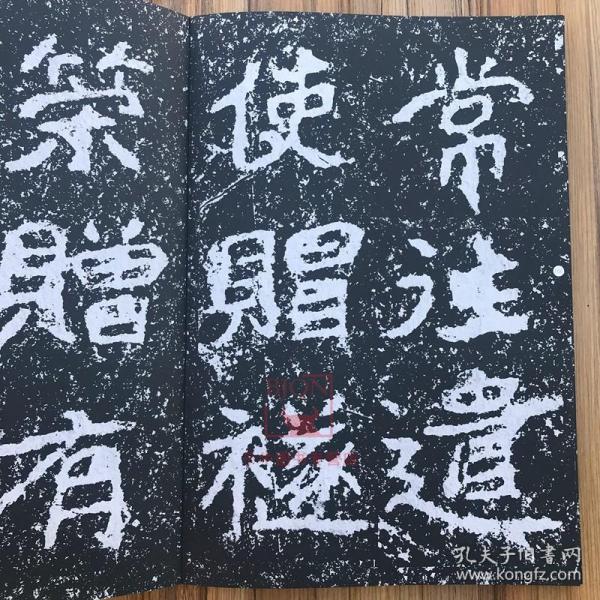 常往遣
使賵襚
策贈有
孔夫子旧书网
www.kongfz.com